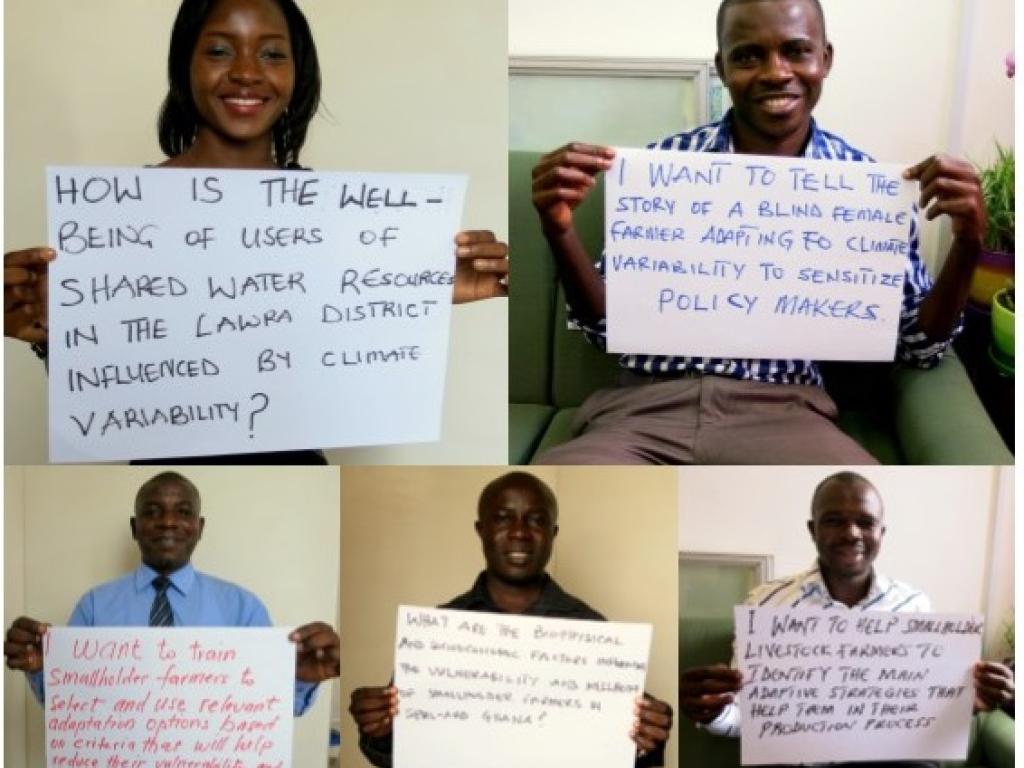 HOW IS THE WELL-
BEING OF USERS OF
SHARED WATER RESOURCES
IN THE LAWRA DISTRICT
INFLUENCED BY CLIMATE
VARIABILITY?
I WANT TO TELL THE
STORY OF A BLIND FEMALE
FARMER ADAPTING TO CLIMATE
VARIABILITY TO SENSITIZE
POLICY MAKERS.
I want to train
Smallholder farmers to
Select and use relevant
adaptation options based
on criteria that will help
reduce their vulnerability and
WHAT ARE THE BIOPHYSICAL
AND SOCIOECONOMIC FACTORS
THE VULNERABILITY AND
OF SMALLHOLDER FARMERS IN
SEMI-ARID GHANA?
I WANT TO HELP SMALLHOLDER
LIVESTOCK FARMERS TO
IDENTIFY THE MAIN
ADAPTIVE STRATEGIES THAT
HELP THEM IN THEIR
PRODUCTION PROCESS